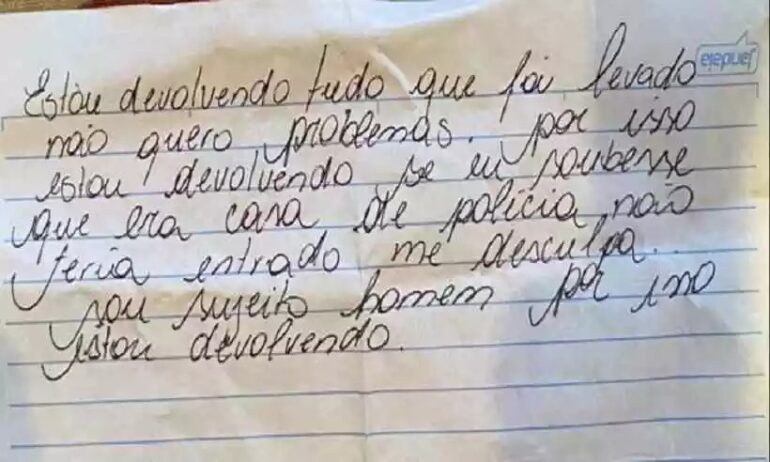 Estou devolvendo tudo que foi levado
não quero problemas. por isso
estou devolvendo se eu soubesse
que era casa de polícia, não
teria entrado me desculpa..
sou sujeito homem por isso
estou devolvendo.
jandaia